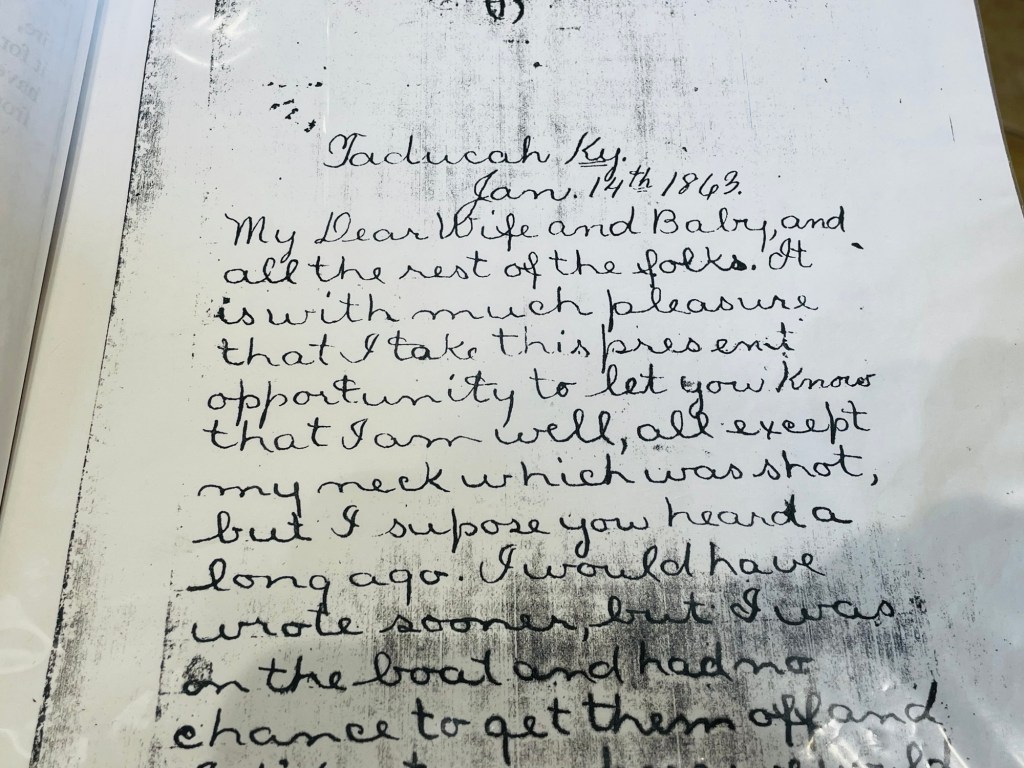 Paducah Ky.
Jan. 14th 1863.
My Dear Wife and Baby, and
all the rest of the folks. It
is with much pleasure
that I take this present
opportunity to let you know
that I am well, all except
my neck which was shot,
but I supose you heard a
long ago. I would have
wrote sooner, but I was
on the boat and had no
chance to get them off and